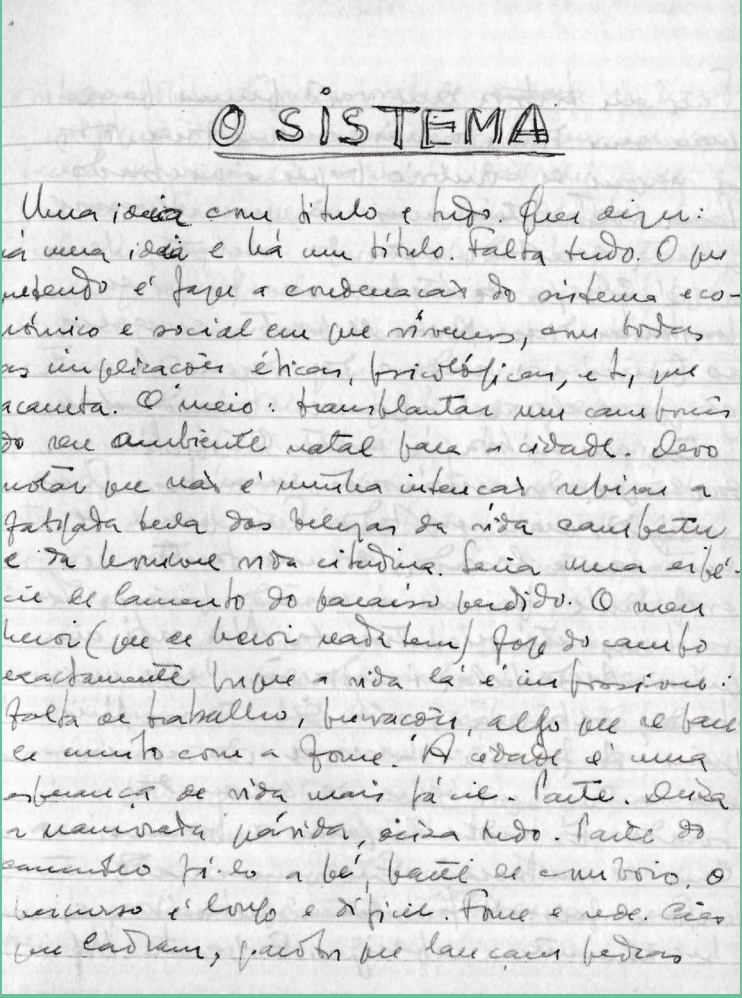 O SISTEMA
Uma ideia com título e tudo. Quer dizer:
há uma ideia e há um título. Falta tudo. O que
pretendo é fazer a condenação do sistema eco-
nómico e social em que vivemos, com todas
as implicações éticas, psicológicas, etc, que
acarreta. O meio: transplantar um camponês
do seu ambiente natal para a cidade. Devo
notar que não é minha intenção repisar a
fatigada tecla das belezas da vida campestre
e da horrível vida citadina. Seria uma espé-
cie de lamento do paraíso perdido. O meu
heroi (que de heroi nada tem) foge do campo
exactamente porque a vida lá é impossível:
falta de trabalho, privações, algo que se parece
muito com a fome. A cidade é uma
esperança de vida mais fácil. Parte. Deixa
a namorada grávida, deixa tudo. Parte do
caminho fá-lo a pé, parte de comboio. O
percurso é longo e difícil. Fome e sede. Cães
que ladram, garotos que lançam pedras